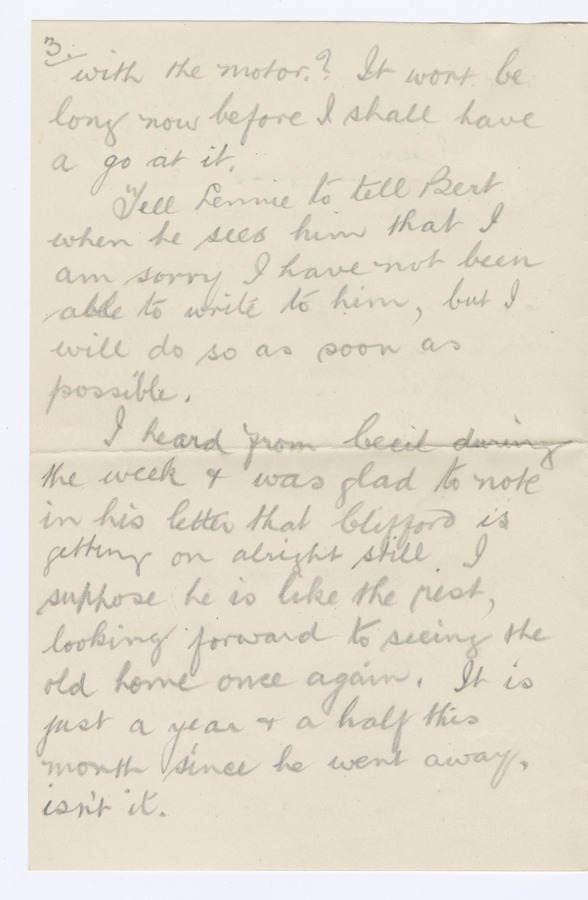 3.
with the motor? It wont be
long now before I shall have
a go at it.
Tell Lennie to tell Bert
when he sees him that I
am sorry I have not been
able to write to him, but I
will do so as soon as
possible.
I heard from Cecil during
the week & was glad to note
in his letter that Clifford is
getting on alright still I
suppose he is like the rest,
looking forward to seeing the
old home once again. It is
just a year & a half this
month since he went away,
isn't it.